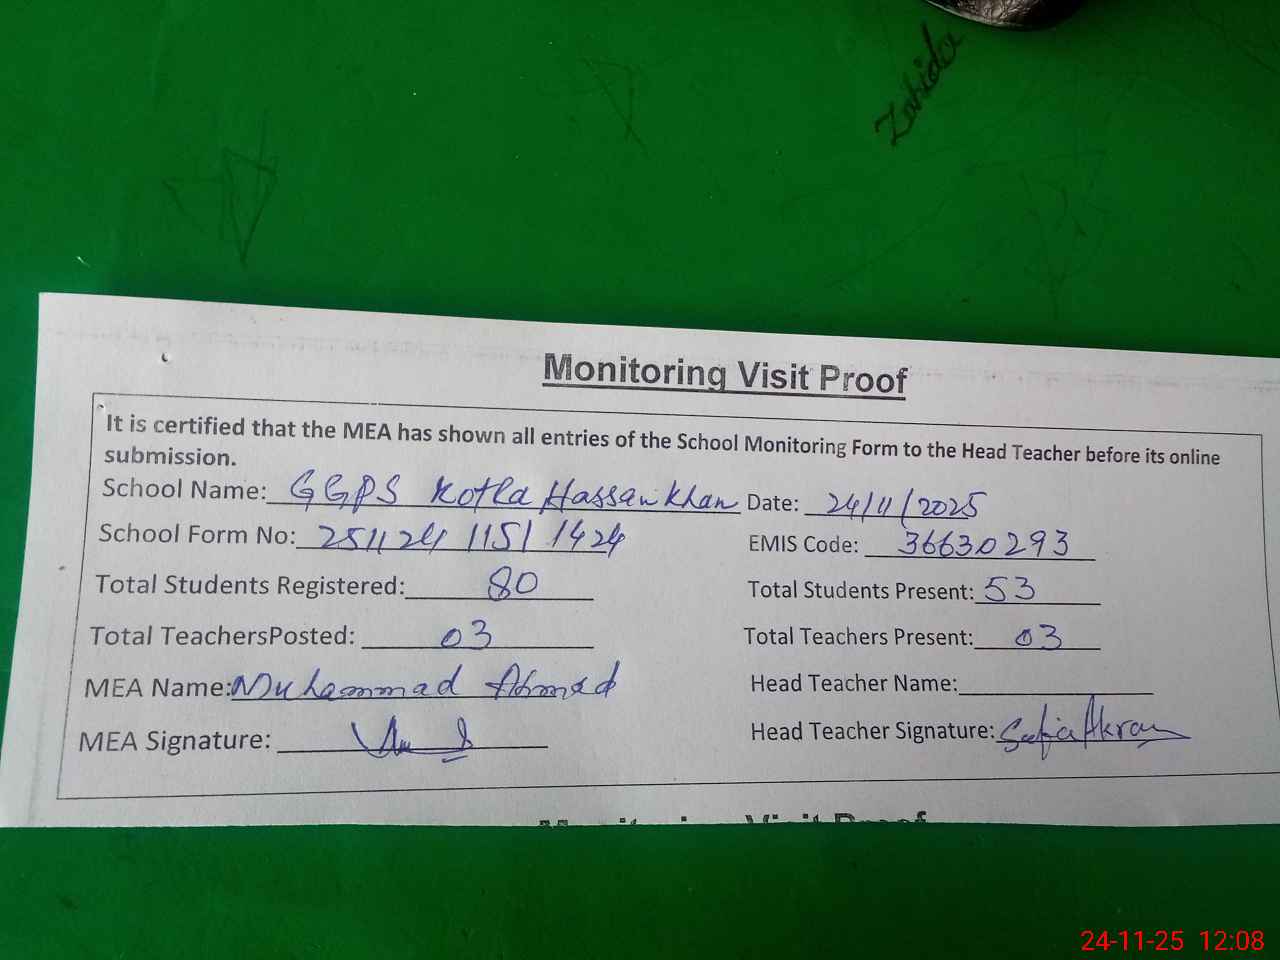 Zahida
Monitoring Visit Proof
It is certified that the MEA has shown all entries of the School Monitoring Form to the Head Teacher before its online
submission.
School Name: GGPS Kotla Hassan Khan Date: 24/11/2025
School Form No: 251124 1151 1424 EMIS Code: 36630293
Total Students Registered: 80 Total Students Present: 53
Total TeachersPosted: 03 Total Teachers Present: 03
MEA Name: Muhammad Ahmad Head Teacher Name:
MEA Signature: Head Teacher Signature: Safia Akram
Monitoring Visit Proof
24-11-25 12:08